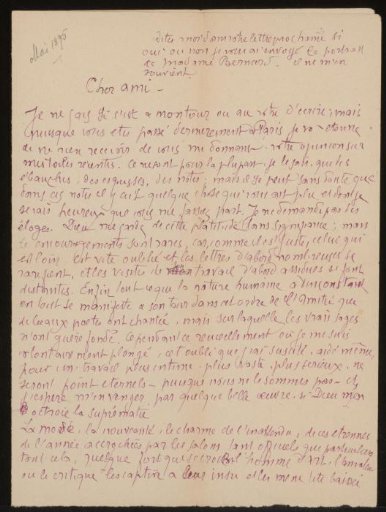 Mai 1895
dites moi dans votre lettre prochaine si
oui ou non je vous ai envoyé le portrait
de Madame Bernard. Je ne m'en
souviens
Cher ami -
Je ne sais si c'est à mon tour ou au votre d'écrire; mais
puisque vous etes passé dernierement à Paris je m'étonne
de ne rien recevoir de vous me donnant votre opinion sur
mes toiles recentes. Ce ne sont pour la plupart, je le sais, que des
ebauches, des esquisses, des notes; mais il se peut sans doute que
dans ces notes il y ait quelque chose qui vous ait plu et dont je
serais heureux que vous me fassiez part. Je ne demande pas des
éloges. Dieu me garde de cette platitude sans sympathie; mais
les encouragements sont rares, car, comme il est juste, celui qui
est loin est vite oublié et les lettres d'abord nombreuses se
rarefient, et les visites de travail d'abord assidues se font
distantes. Enfin tout ce que la nature humaine a d'inconstant
en tout se manifeste à son tour dans cet ordre de l'Amitié que
de beaux poetes ont chantée, mais sur laquelle les vrais sages
n'ont guere fondé. Cependant ce recueillement où je me suis
volontairement plongé, cet oubli que j'ai suscité, aidé même,
pour un travail plus intime, plus vaste, plus serieux, ne
seront point eternels - puisque nous ne le sommes pas - et
j'espere m'en venger par quelque belle œuvre, si Dieu m'en
octroie la suprématie
La mode, la nouveauté, le charme de l'inattendu, des etrennes
de l'année accrochées par les salons tant officiels que particuliers
tout cela, quelque fort que se croie l'homme d'Art, l'amateur
ou le critique, les captive à leur insu et les mene tête baissée